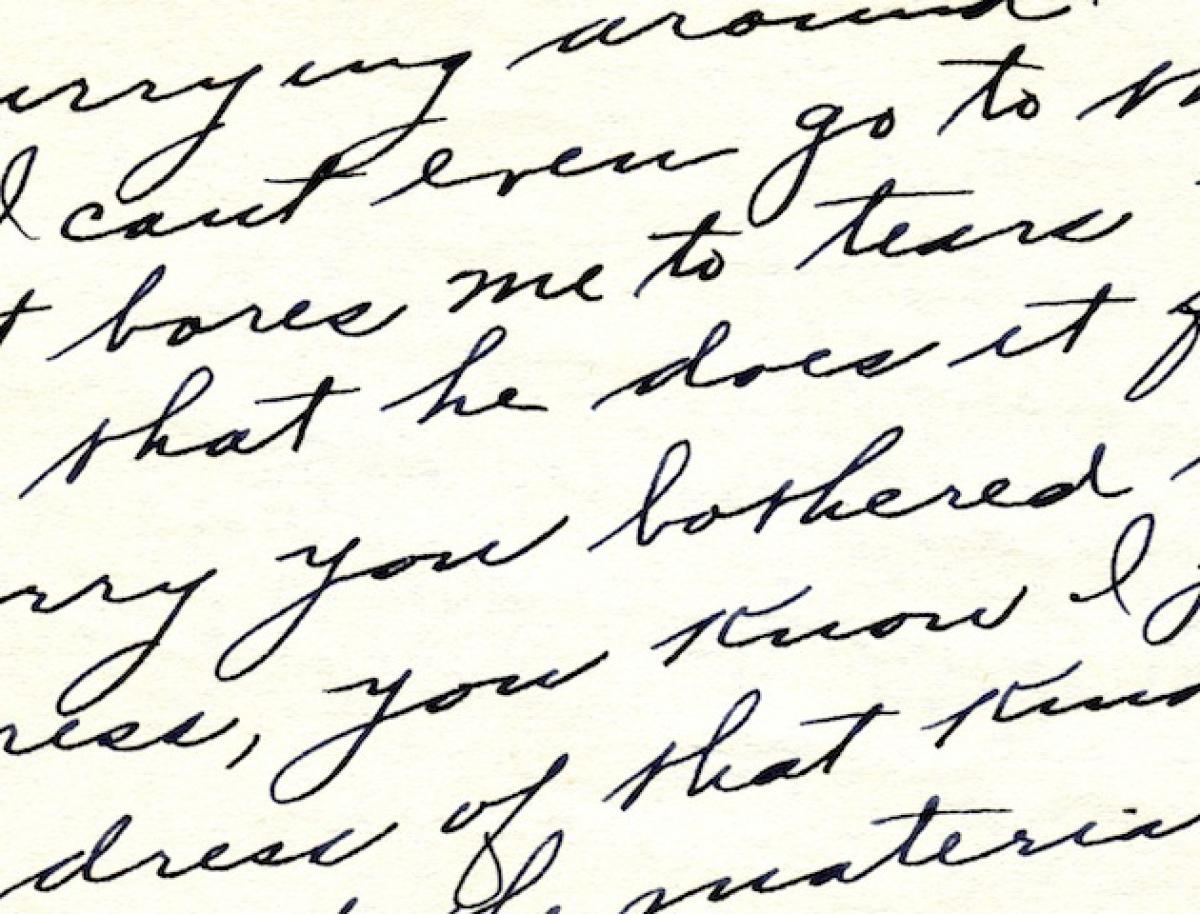 urrying around
I cant even go to
t bores me to tears
that he does it
rry you bothered
ress, you know I
dress of that kind
materia